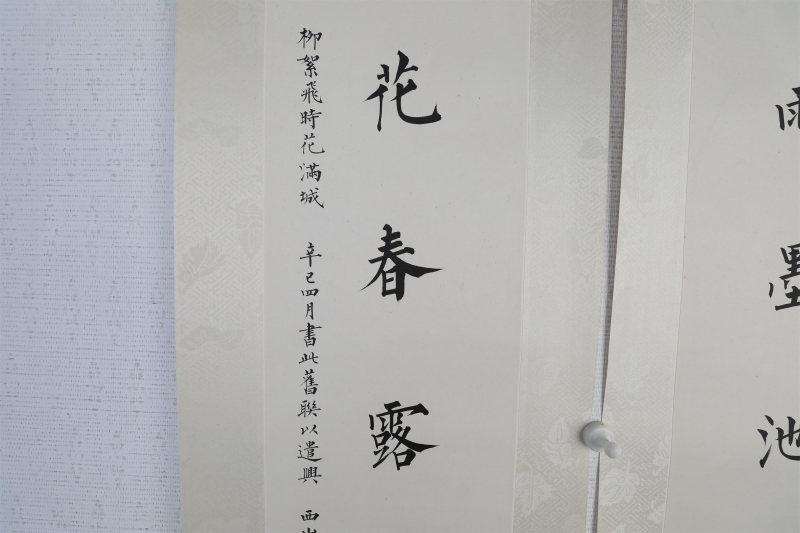 雨墨池
花春露
柳絮飛時花滿城 辛巳四月書此舊聯以遣興 西